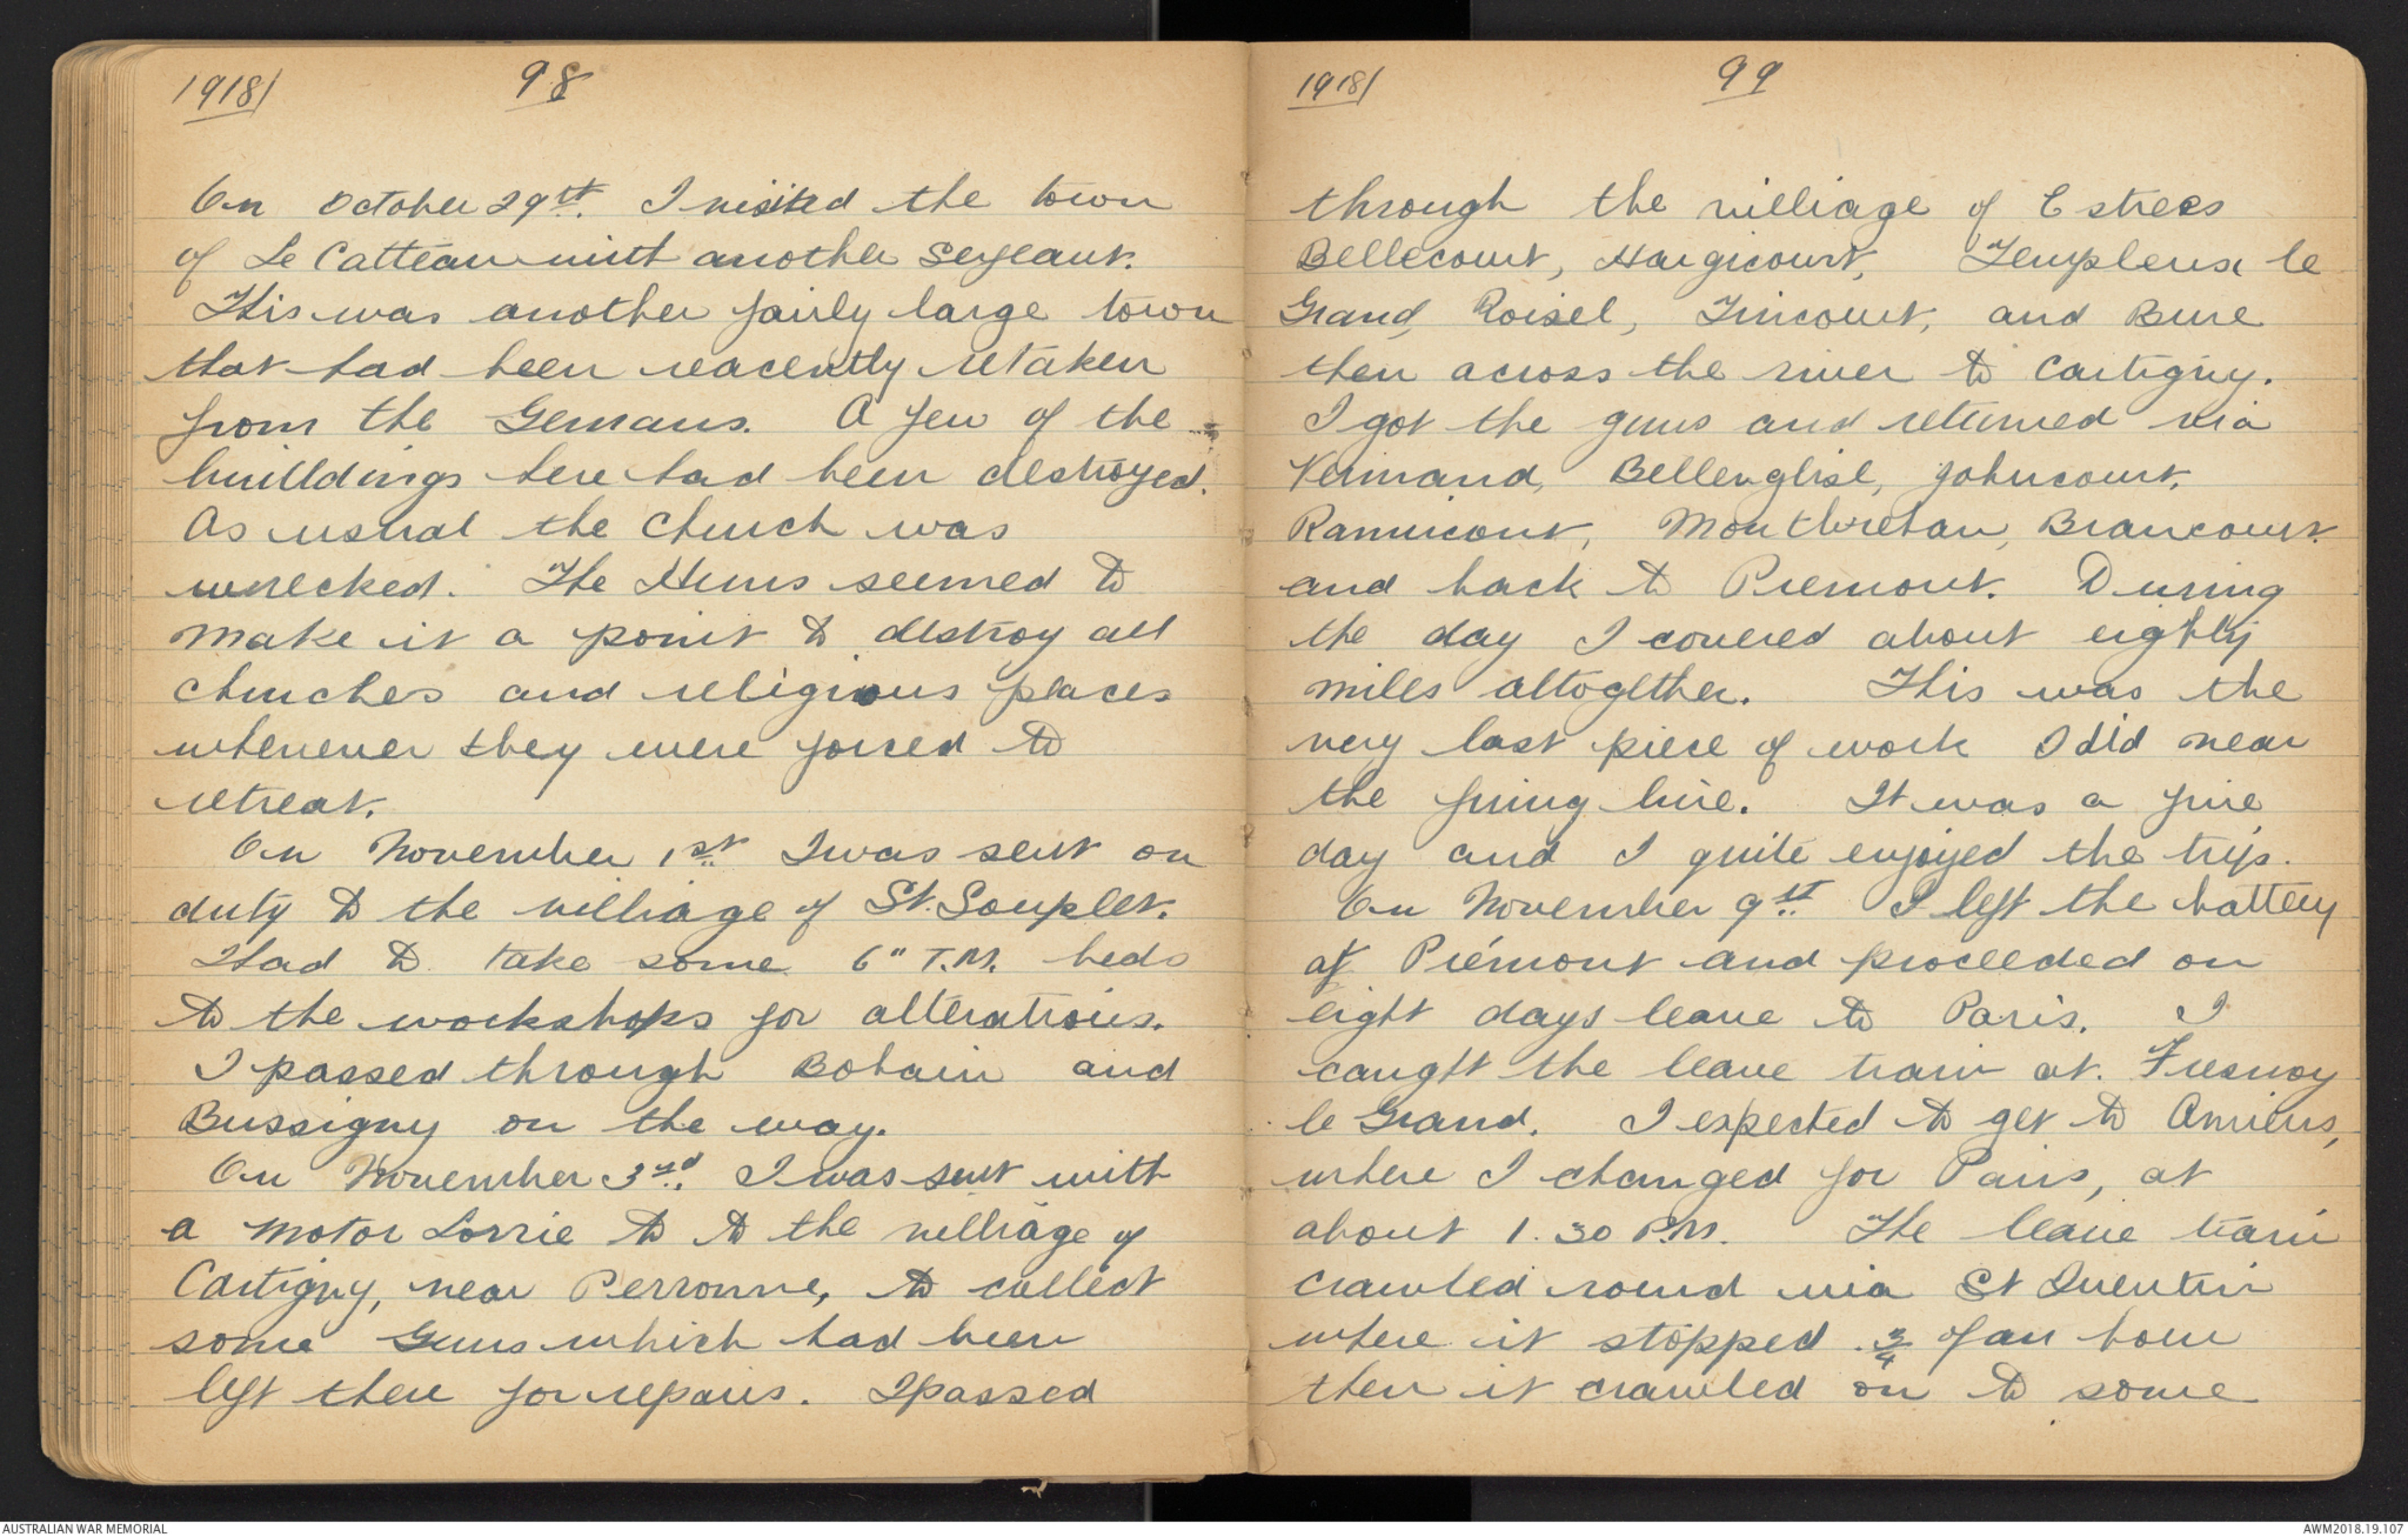 1918/ 98
On October 29th. I visited the town
of Le Catteau with another sergeant.
This was another fairly large town
that had been reacently retaken
from the Gemans. A few of the
builldings here had been destroyed.
As usual the Church was
wrecked. The Huns seemed to
make it a point to destroy all
churches and religious places
whenever they were forced to
retreat.
On November 1st I was sent on
duty to the villiage of St. Souplet.
Had to take some 6" T.M. beds
to the workshops for alterations.
I passed through Bohain and
Bussigny on the way.
On November 3rd. I was sent with
a motor Lorrie to to the villiage of
Cartigny, near Perronne, to collect
some Guns which had been
left there for repairs. I passed
1918/ 99
through the villiage of Estrees
Bellecourt, Hargicourt, Templeux le
Grand, Roisel, Tincourt, and Bure
then across the river to Cartigny.
I got the guns and returned via
Vermand, Bellenglise, Johncourt,
Ramicourt, Montbrehan, Brancourt
and back to Premont. During
the day I covered about eighty
miles altogether. This was the
very last piece of work I did near
the firing line. It was a fine
day and I quite enjoyed the trip.
On November 9th. I left the battery
at Prémont and proceeded on
eight days leave to Paris. I
caught the leave train at. Fresnoy
le Grand. I expected to get to Amiens,
where I changed for Paris, at
about 1.30 P.M. The leave train
crawled round via St Quentin
where it stopped 3/4 of an hour
then it crawled on to some
AUSTRALIAN WAR MEMORIAL
AWM2018.19.107